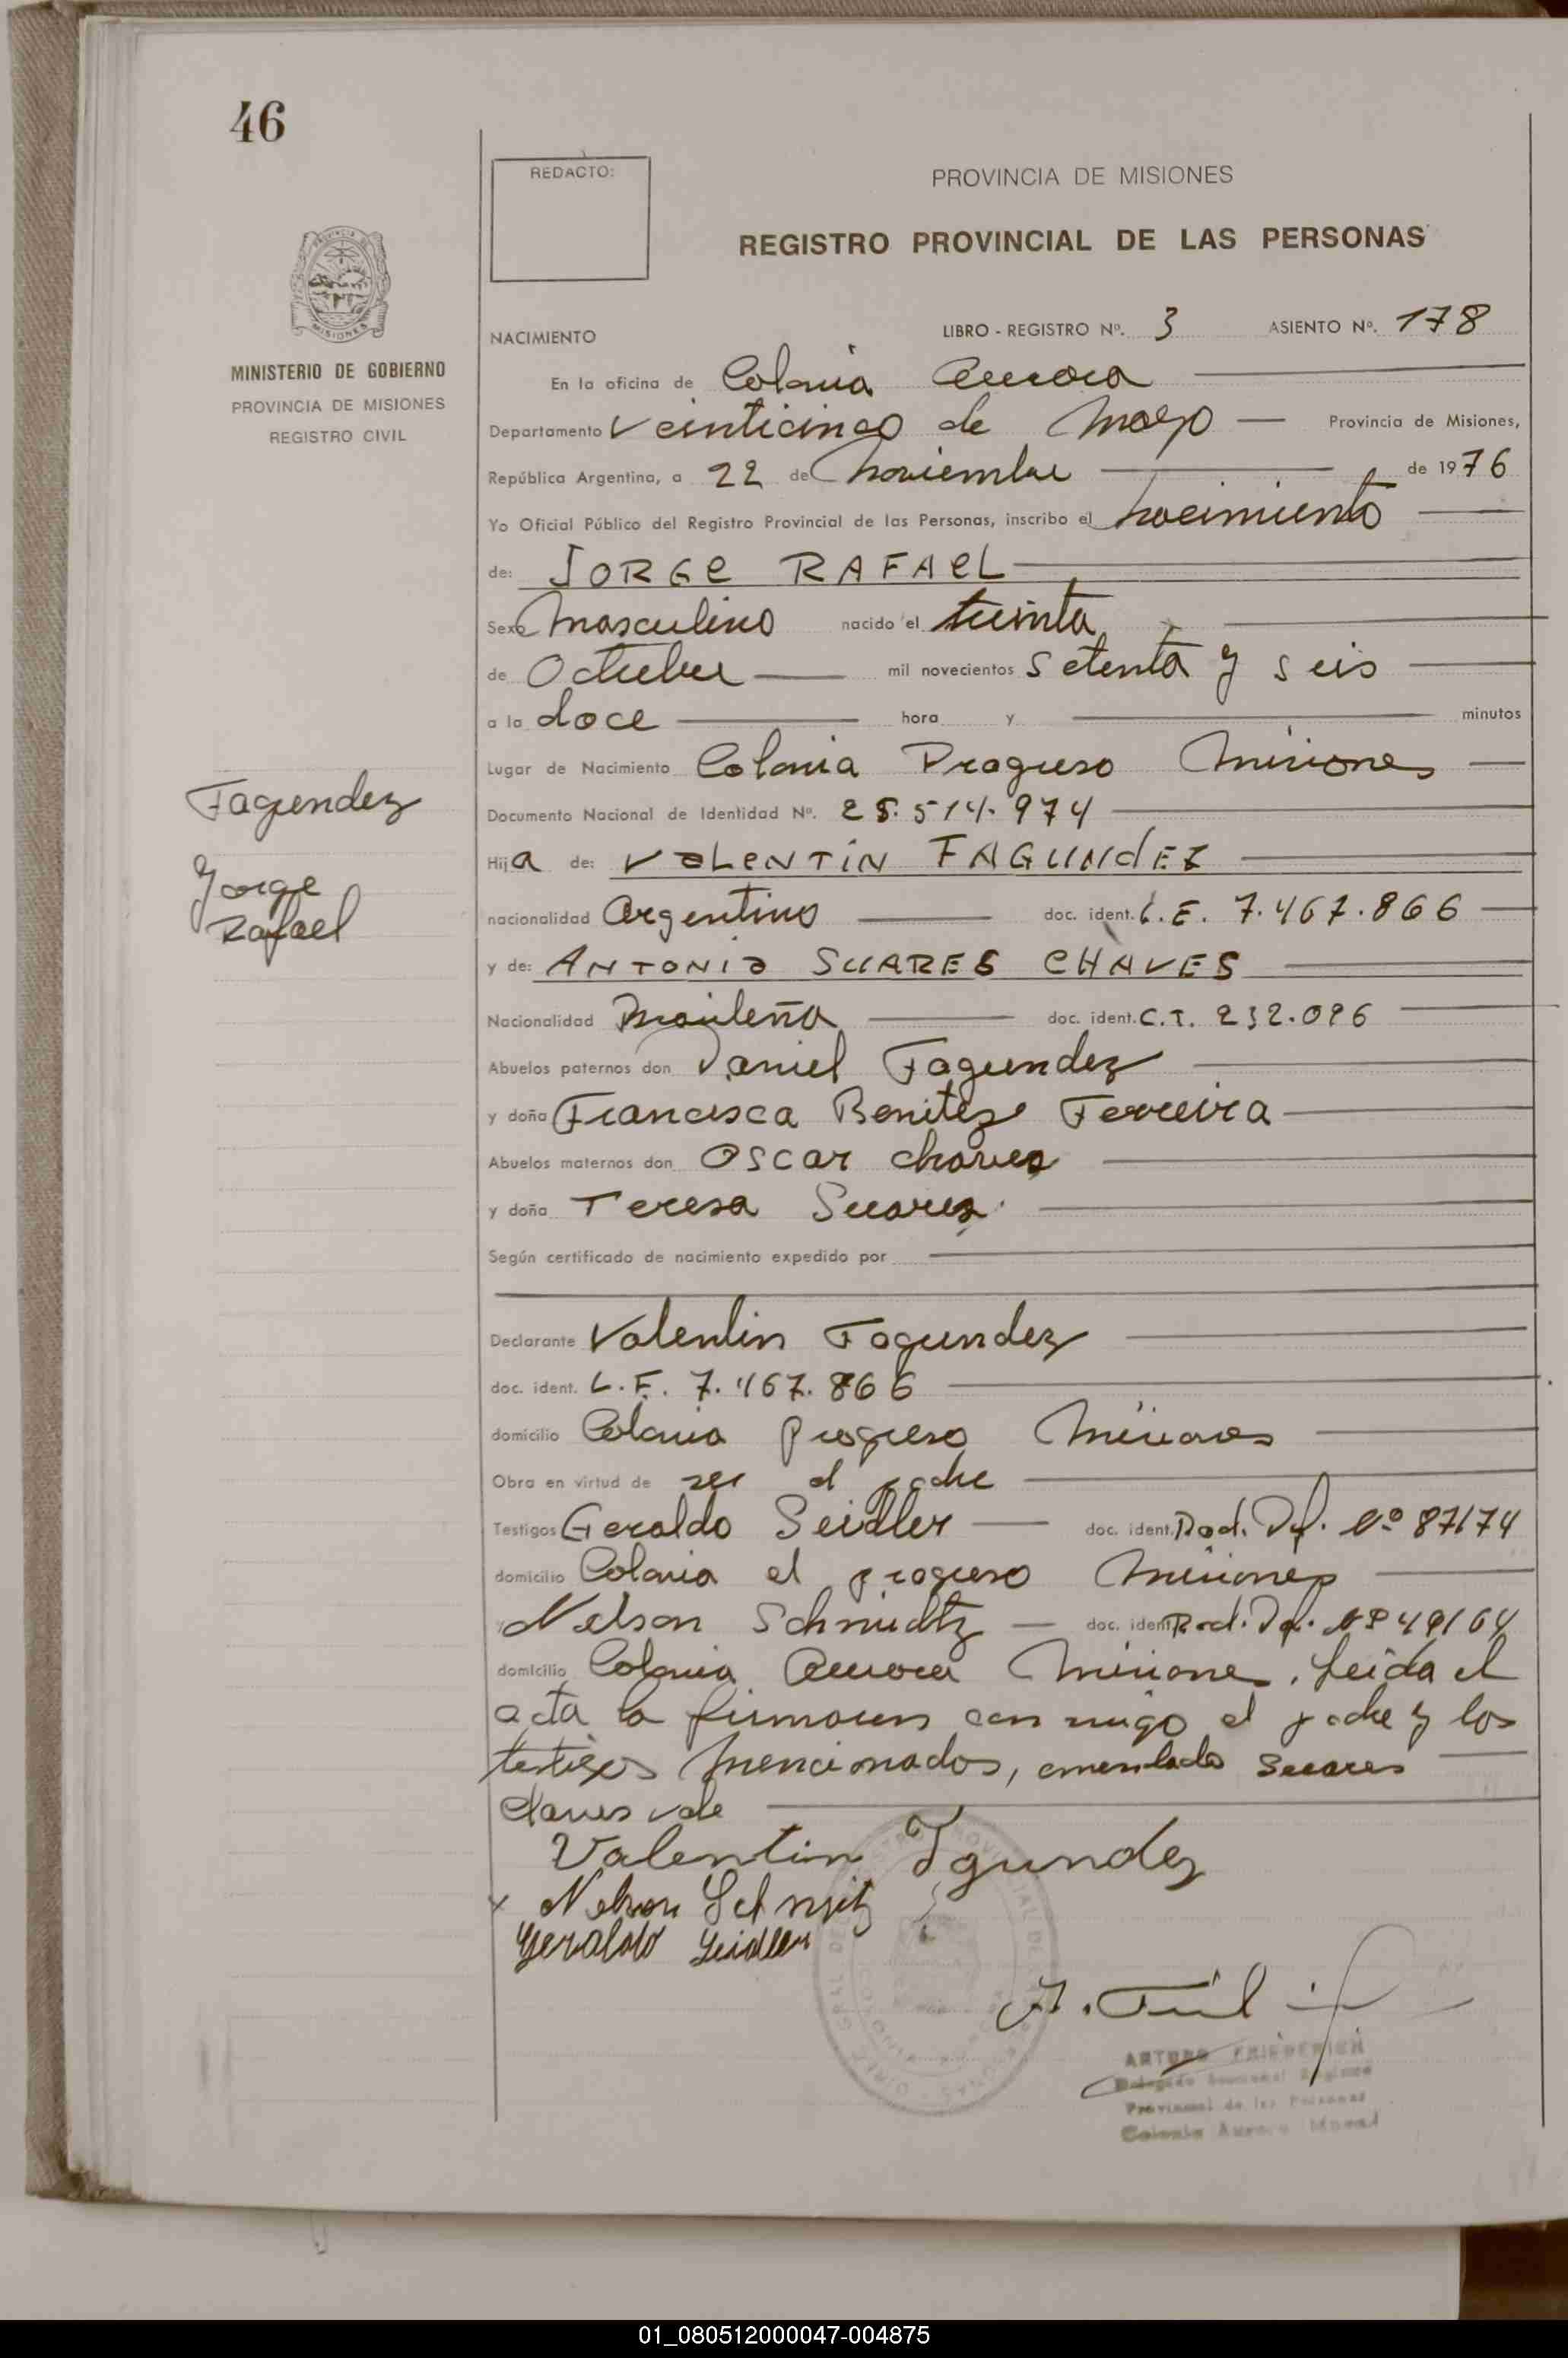 46
REDACTO:
PROVINCIA DE MISIONES
REGISTRO PROVINCIAL DE LAS PERSONAS
MINISTERIO DE GOBIERNO
PROVINCIA DE MISIONES
REGISTRO CIVIL
NACIMIENTO LIBRO - REGISTRO Nº. 3 ASIENTO Nº. 178
En la oficina de Colonia Aurora
Departamento Veinticinco de Mayo Provincia de Misiones,
República Argentina, a 22 de Noviembre de 1976
Yo Oficial Público del Registro Provincial de las Personas, inscribo el nacimiento
de: JORGE RAFAEL
Sexo Masculino nacido el treinta
de Octubre mil novecientos setenta y seis
a la doce hora y minutos
Lugar de Nacimiento Colonia Progreso Misiones
Fagundez
Jorge
Rafael
Documento Nacional de Identidad Nº. 25.514.974
Hija de: VALENTIN FAGUNDEZ
nacionalidad Argentino doc. ident. L.E. 7.467.866
y de: ANTONIA SUARES CHAVES
Nacionalidad Brasileña doc. ident. C.I. 232.096
Abuelos paternos don Daniel Fagundez
y doña Francisca Benitez Ferreira
Abuelos maternos don Oscar chaves
y doña Teresa Suarez
Según certificado de nacimiento expedido por
Declarante Valentin Fagundez
doc. ident. L.E. 7.467.866
domicilio Colonia progreso Misiones
Obra en virtud de ser el padre
Testigos Geraldo Seidler doc. ident. Pod. Nº 87174
domicilio Colonia el progreso Misiones
Nelson Schmidtz doc. ident. Nº 49164
domicilio Colonia Aurora Misiones. Leida el
acta la firmaron con migo el padre y los
testigos mencionados, emendado Suares
Chaves vale
Valentin Fgundez
x Nelson Schmitz
Geraldo Seidler
ARTURO FRIEDERICH
Provincial de las Personas
Colonia Aurora
01_080512000047-004875